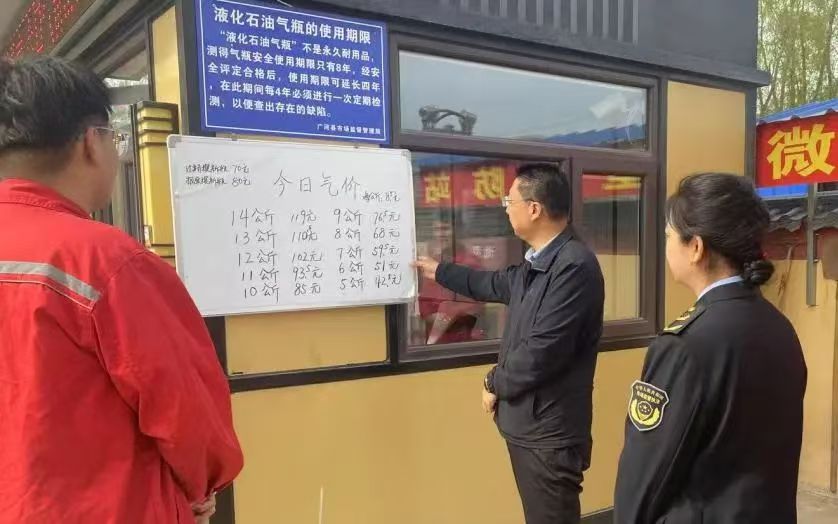 液化石油气瓶的使用期限
“液化石油气瓶”不是永久耐用品,
测得气瓶安全使用期限只有8年, 经安
全评定合格后, 使用期限可延长四年
, 在此期间每4年必须进行一次定期检
测, 以便查出存在的缺陷。
广河县市场监督管理局
70元
80元
今日气价
14公斤 119元 9公斤 76⁵元
13公斤 110⁵元 8公斤 68元
12公斤 102元 7公斤 59⁵元
11公斤 93⁵元 6公斤 51元
10公斤 85元 5公斤 42⁵元
微
防
站